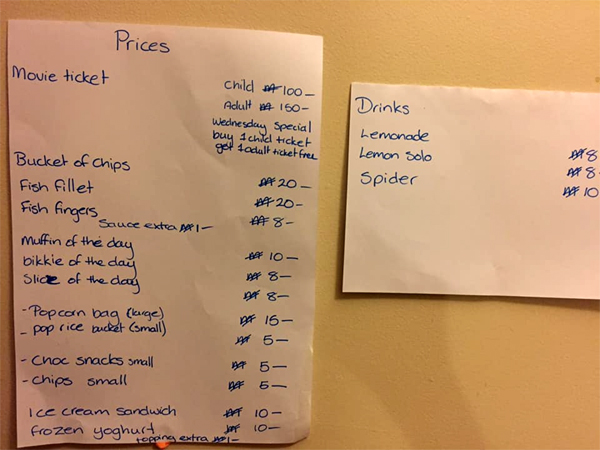 Prices
Movie ticket
Child 100-
Adult 150-
Wednesday special
buy 1 child ticket
get 1 adult ticket free
Bucket of Chips 20-
Fish fillet 20-
Fish fingers 8-
Sauce extra 1-
Muffin of the day 10-
bikkie of the day 8-
Slice of the day 8-
- Popcorn bag (large) 15-
- pop rice bucket (small) 5-
- Choc snacks small 5-
- chips small 5-
Ice cream sandwich 10-
frozen yoghurt 10-
topping extra 1-
Drinks
Lemonade 8
Lemon Solo 8-
Spider 10